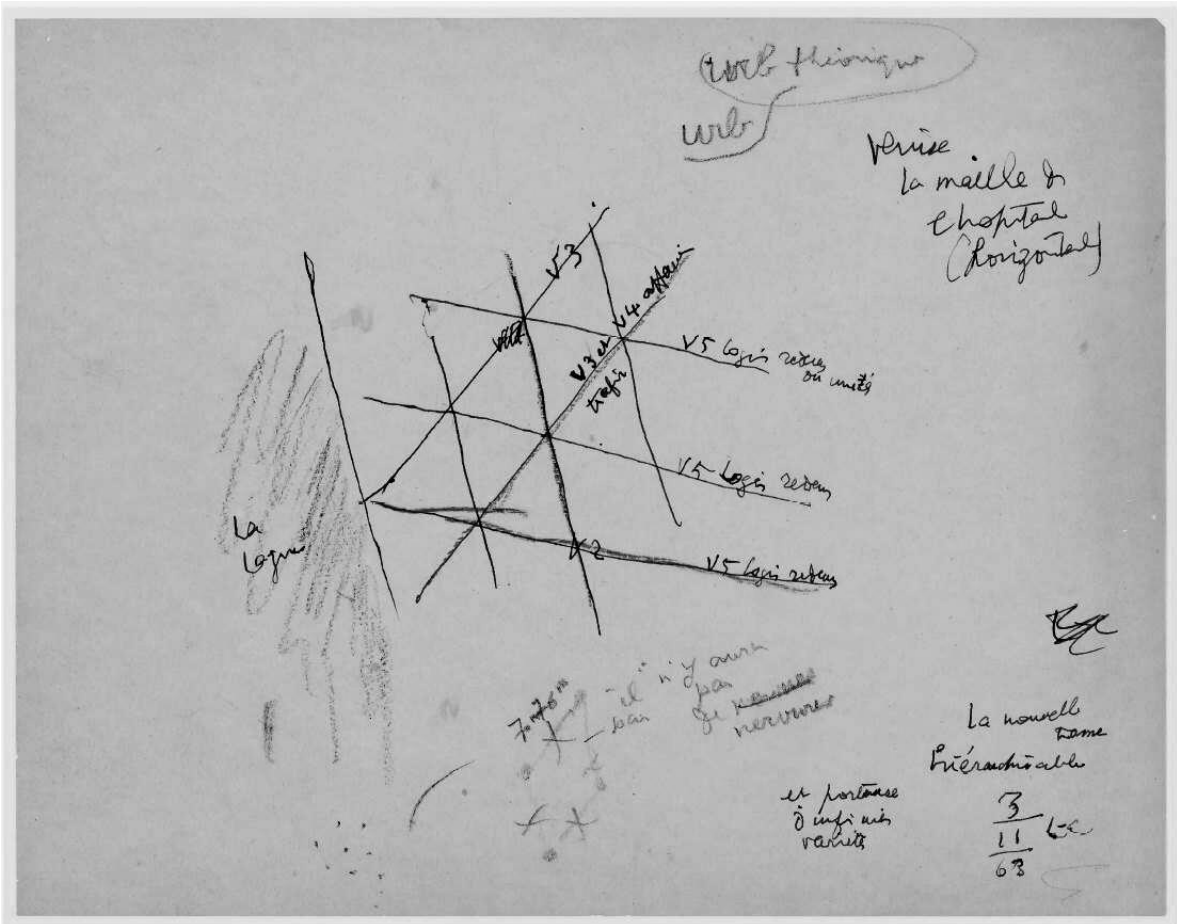 urb théorique
urb
Venise
la maille de
l'hopital
(horizontal)
V3
V3 et V4 affaires
trafic
V5 logis redens
ou unité
V5 logis redens
La
lagune
V2
V5 logis redens
"il n'y aura
pas
de
nervures
La nouvelle
trame
hiérarchisable
et porteuse
d'infinies
variétés
3
11
63